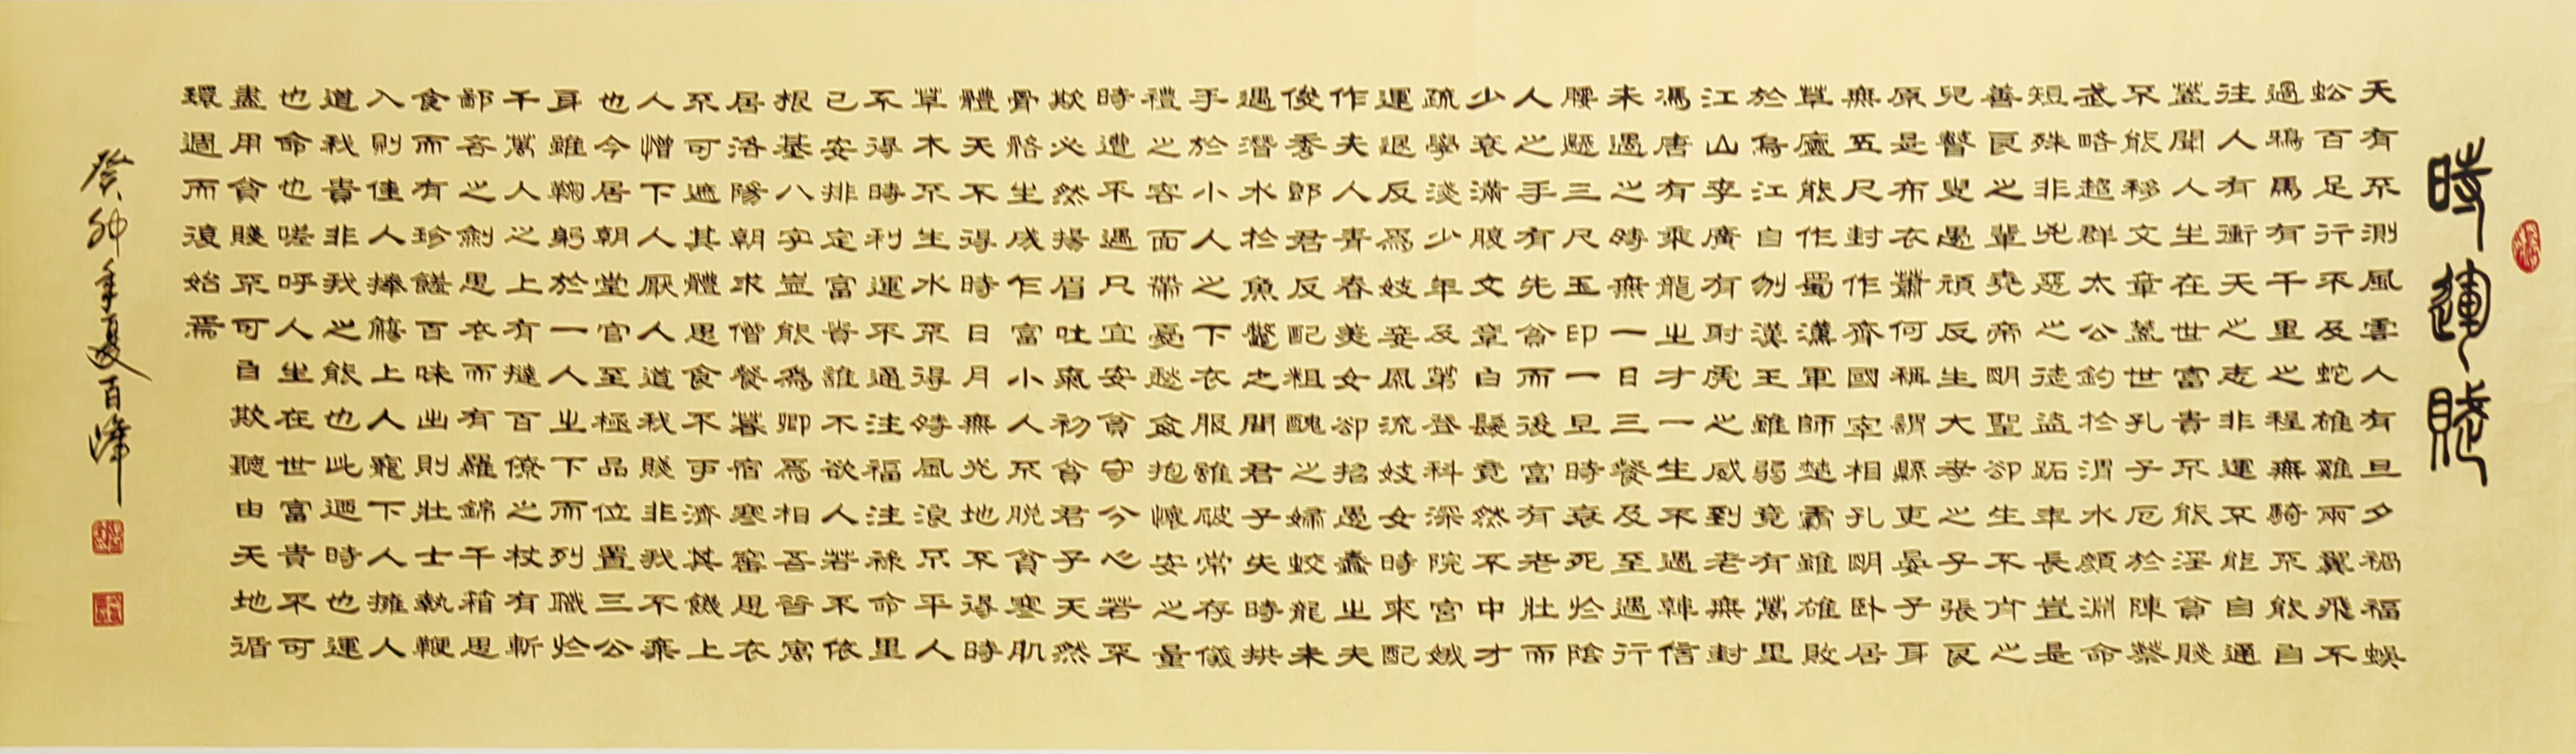 時運賦
天有不測風雲人有旦夕禍福蜈
蚣百足行不及蛇雄雞兩翼飛不
過鴉馬有千里之程無騎不能自
往人有衝天之志非運不能自通
蓋聞人生在世富貴不能淫貧賤
不能移文章蓋世孔子厄於陳蔡
武略超群太公釣於渭水顏淵命
短殊非兇惡之徒盜跖年長豈是
善良之輩堯帝明聖卻生不肖之
兒瞽叟愚頑反生大孝之子張良
原是布衣蕭何稱謂縣吏晏子身
無五尺封作齊國宰相孔明臥居
草廬能作蜀漢軍師楚霸雖雄敗
於烏江自刎漢王雖弱竟有萬里
江山李廣有射虎之威到老無封
馮唐有乘龍之才一生不遇韓信
未遇之時無一日三餐及至遇行
腰懸三尺玉印一旦時衰死於陰
人之手有先貧而後富有老壯而
少衰滿腹文章白髮竟然不中才
疏學淺少年及第登科深院宮娥
運退反為妓妾風流妓女時來配
作夫人青春美女卻招愚蠢之夫
俊秀郎君反配粗醜之婦蛟龍未
遇潛水於魚鱉之間君子失時拱
手於小人之下衣服雖破常存儀
禮之客面帶憂愁僉抱懷安之量
時遭不遇只宜安貧守分心若不
欺必然揚眉吐氣初貧君子天然
骨骼生成乍富小人不脫貧寒肌
體天不得時日月無光地不得時
草木不生水不得時風浪不平人
不得時利運不通注福注祿命里
已安排定富貴誰不欲人若不依
根基八字豈能為卿為相吾昔寓
居洛陽朝求僧餐暮宿寒窰思衣
不可遮其體思食不可濟其飢上
人憎下人厭人道我賤非我不棄
也今居朝堂官至極品位置三公
身雖鞠躬於一人之下而列職於
千萬人之上有撻百僚之杖有斬
鄙吝之劍思衣而有羅錦千箱思
食而有珍饈百味出則壯士執鞭
入則佳人捧觴上人寵下人擁人
道我貴非我之能也此迺時也運
也命也嗟呼人生在世富貴不可
盡用貧賤不可自欺聽由天地循
環週而復始焉
癸卯年夏百峰